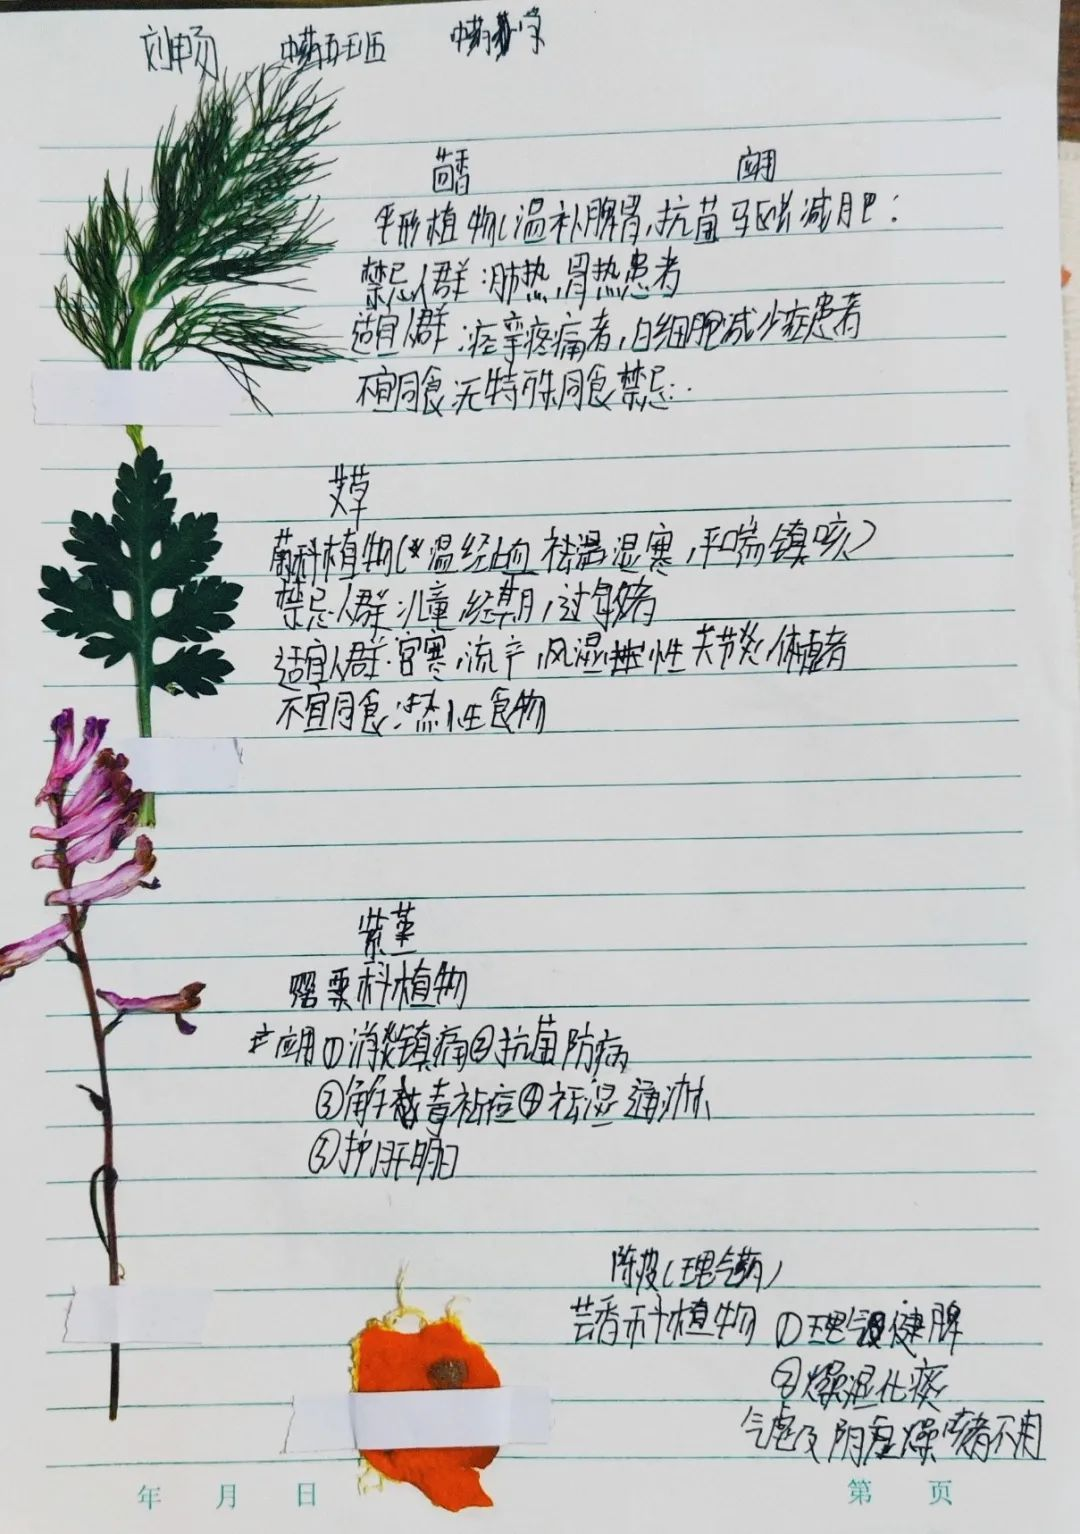 刘畅 中药五班 中药药学
茴香 应用
伞形植物(温补脾胃,抗菌驱虫减肥:
禁忌人群:肺热,胃热患者
适宜人群:痉挛疼痛者,白细胞减少症患者
不宜同食:无特殊同食禁忌.
艾草
菊科植物(温经止血 祛湿寒,平喘镇咳)
禁忌人群:儿童,经期,过敏者
适宜人群:宫寒,流产,风湿性关节炎,体虚者
不宜同食:热性食物
紫堇
罂粟科植物
应用①消炎镇痛②抗菌防病
③解毒祛痘④祛湿通淋
⑤护肝明目
陈皮(理气药)
芸香科植物 ①理气健脾
②燥湿化痰
气虚及阴虚燥咳者不用
年 月 日 第 页